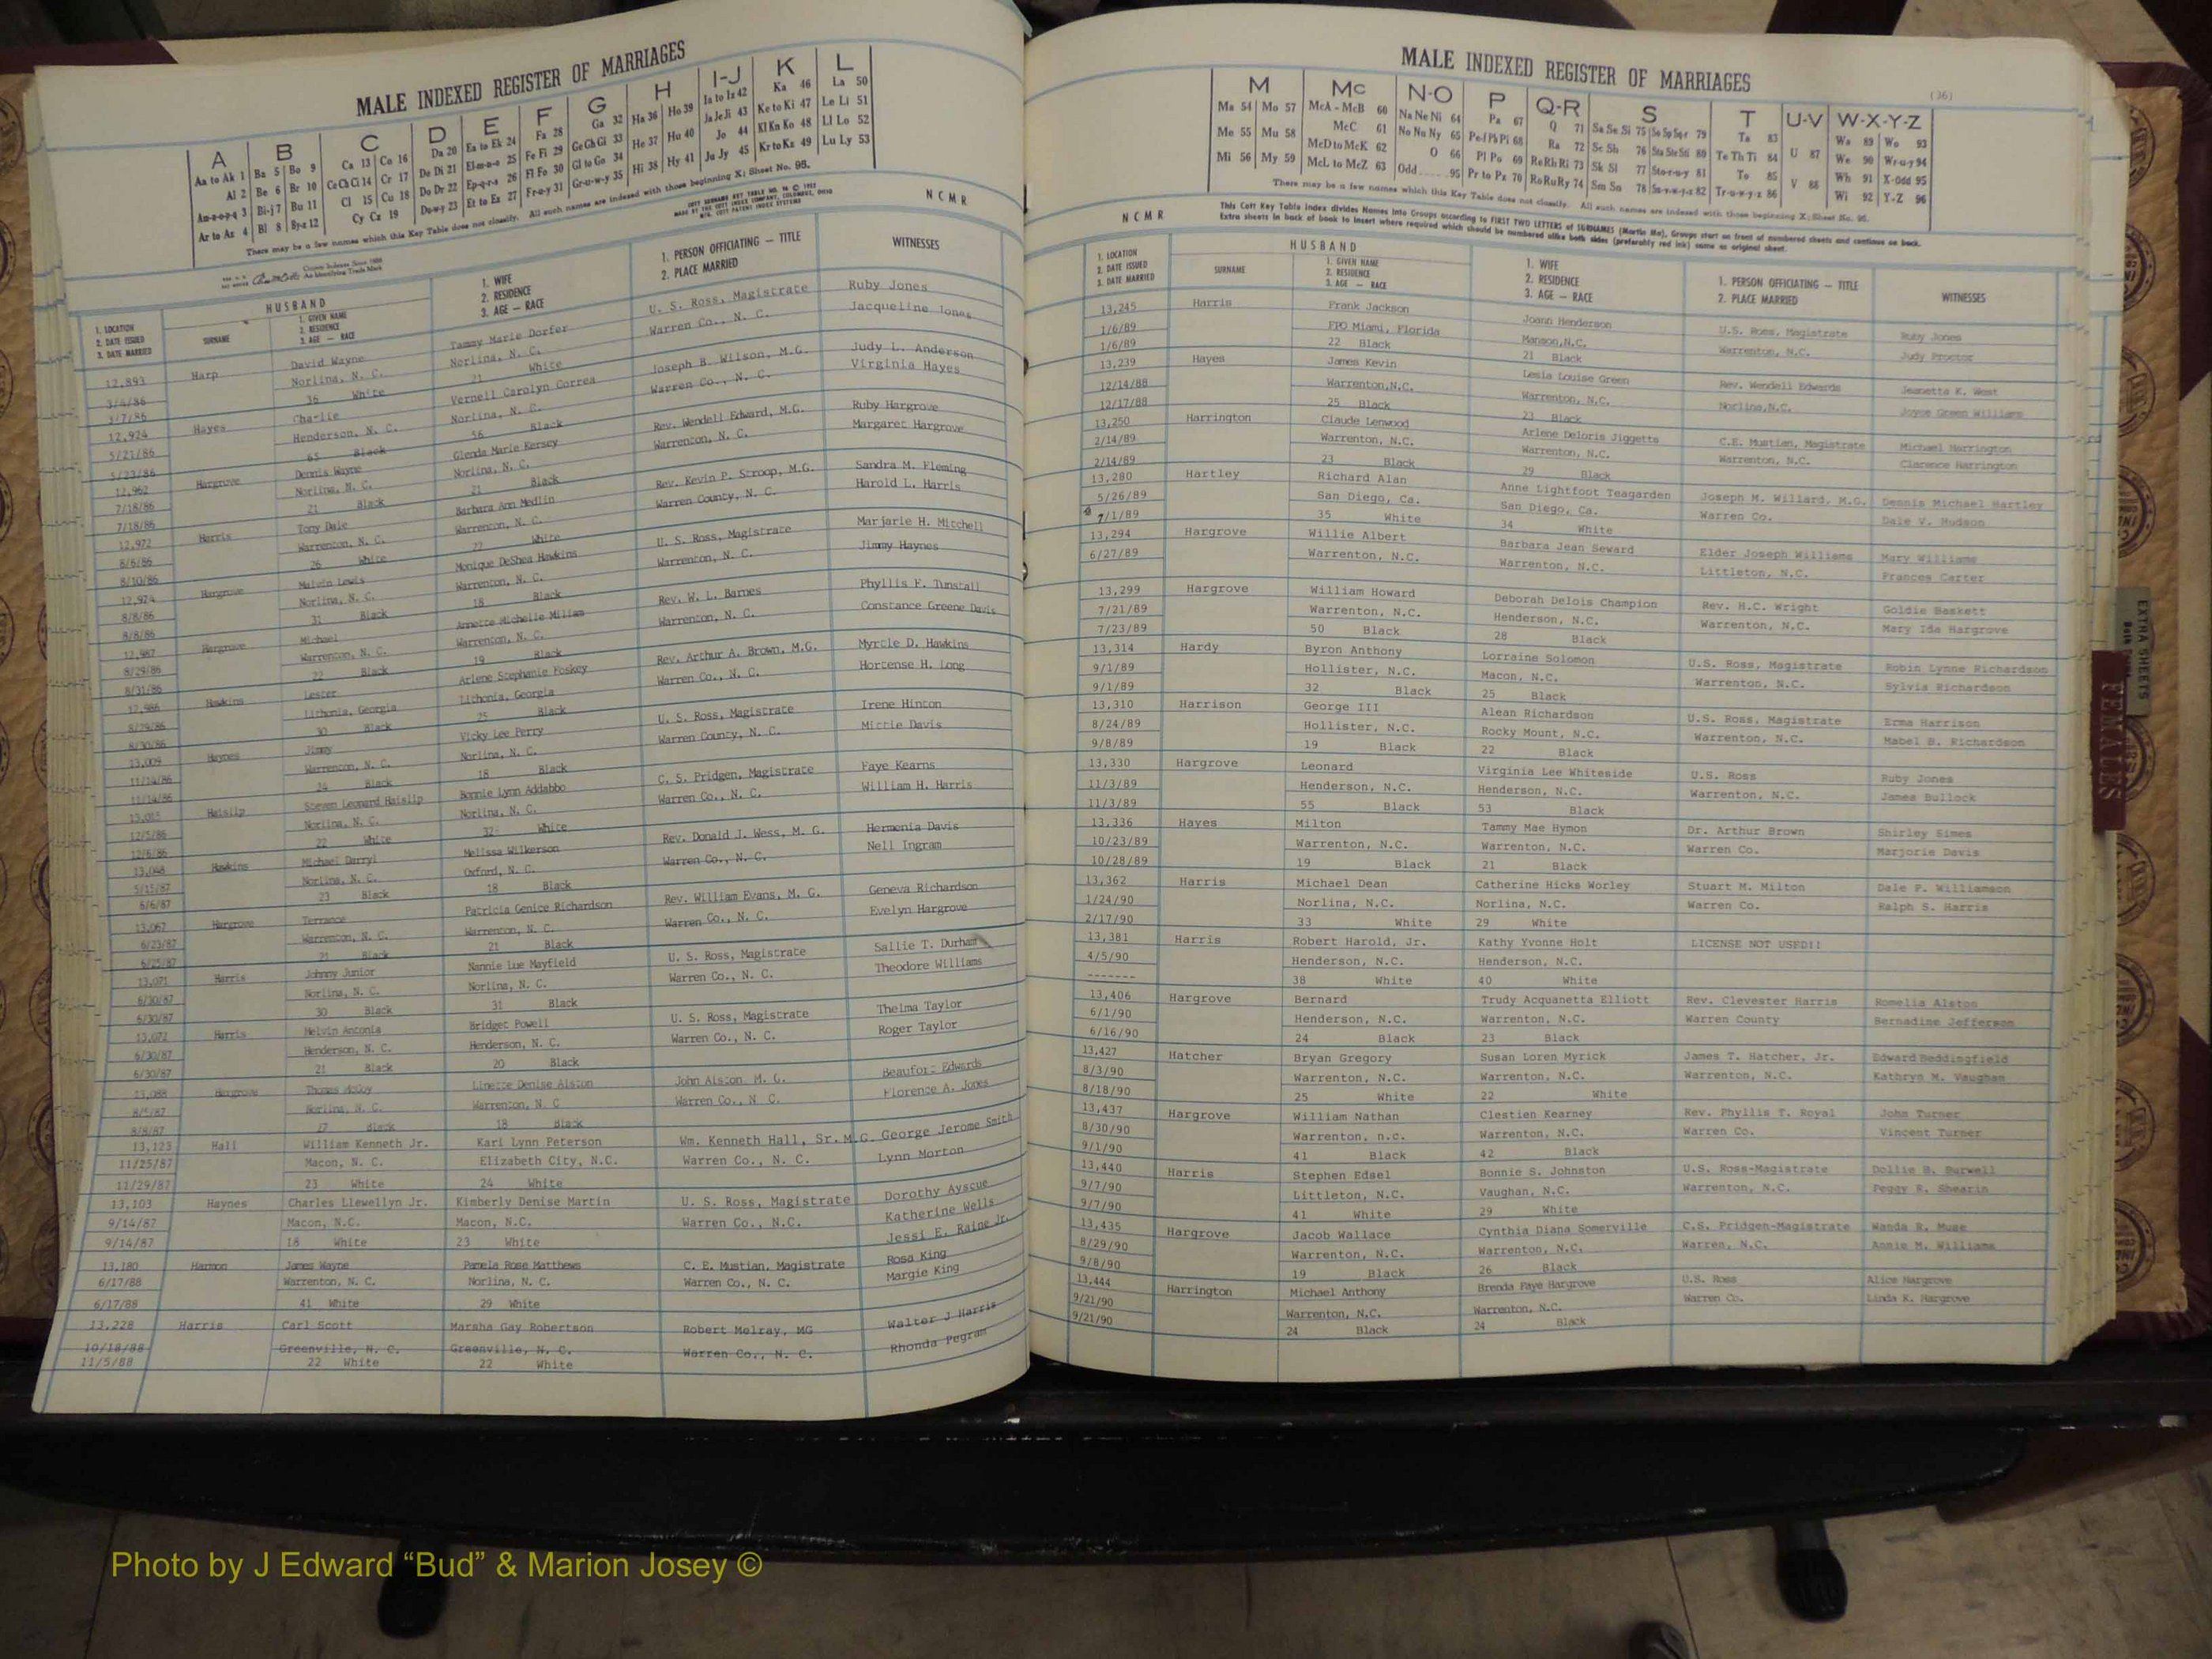 MALE INDEXED REGISTER OF MARRIAGES
A B C D E F G H I-J K L
Aa to Ak 1 Ba 5 Bo 9 Ca 13 Co 16 Da 20 Ea to Ek 24 Fa 28 Ga 32 Ha 36 Ho 39 Ia to Iz 42 Ka 46 La 50
Al 2 Be 6 Br 10 Ce Ch Ci 14 Cr 17 De Di 21 El-m-n-o 25 Fe Fi 29 Ge Gh Gi 33 He 37 Hu 40 Ja Je Ji 43 Ke to Ki 47 Le Li 51
Am-n-o-p-q 3 Bi-j 7 Bu 11 Cl 15 Cu 18 Do Dr 22 Ep-q-r-s 26 Fl Fo 30 Gl to Go 34 Hi 38 Hy 41 Jo 44 Kl Kn Ko 48 Ll Lo 52
Ar to Az 4 Bl 8 By-z 12 Cy Cz 19 Du-w-y 23 Et to Ez 27 Fr-u-y 31 Gr-u-w-y 35 Ju Jy 45 Kr to Kz 49 Lu Ly 53
There may be a few names which this Key Table does not classify. All such names are indexed with those beginning X; Sheet No. 95.
NCMR
HUSBAND
1. LOCATION 2. DATE ISSUED 3. DATE MARRIED
SURNAME
1. GIVEN NAME 2. RESIDENCE 3. AGE — RACE
1. WIFE 2. RESIDENCE 3. AGE — RACE
1. PERSON OFFICIATING — TITLE 2. PLACE MARRIED
WITNESSES
12,893 Harp David Wayne Tammy Marie Dorfer U. S. Ross, Magistrate Ruby Jones
3/4/86 Norlina, N. C. Norlina, N. C. Warren Co., N. C. Jacqueline Jones
3/7/86 36 White 21 White
12,924 Hayes Charlie Vernell Carolyn Correa Joseph B. Wilson, M.G. Judy L. Anderson
5/21/86 Henderson, N. C. Norlina, N. C. Warren Co., N. C. Virginia Hayes
5/23/86 65 Black 56 Black
12,962 Hargrove Dennis Wayne Glenda Marie Kersey Rev. Wendell Edward, M.G. Ruby Hargrove
7/18/86 Norlina, N. C. Norlina, N. C. Warrenton, N. C. Margaret Hargrove
7/18/86 21 Black 21 Black
12,972 Harris Tony Dale Barbara Ann Medlin Rev. Kevin P. Stroop, M.G. Sandra M. Fleming
8/6/86 Warrenton, N. C. Warrenton, N. C. Warren County, N. C. Harold L. Harris
8/10/86 26 White 22 White
12,974 Hargrove Malvin Lewis Monique DeShea Hawkins U. S. Ross, Magistrate Marjarie H. Mitchell
8/8/86 Norlina, N. C. Warrenton, N. C. Warrenton, N. C. Jimmy Haynes
8/8/86 31 Black 18 Black
12,987 Hargrove Michael Annette Michelle Miliam Rev. W. L. Barnes Phyllis F. Tunstall
8/29/86 Warrenton, N. C. Warrenton, N. C. Warrenton, N. C. Constance Greene Davis
8/31/86 22 Black 19 Black
12,986 Hawkins Lester Arlene Stephanie Foskey Rev. Arthur A. Brown, M.G. Myrtle D. Hawkins
8/29/86 Lithonia, Georgia Lithonia, Georgia Warren Co., N. C. Hortense H. Long
8/30/86 30 Black 25 Black
13,009 Haynes Jimmy Vicky Lee Perry U. S. Ross, Magistrate Irene Hinton
11/14/86 Warrenton, N. C. Norlina, N. C. Warren County, N. C. Mittie Davis
11/14/86 24 Black 18 Black
13,015 Haislip Steven Leonard Haislip Bonnie Lynn Addabbo C. S. Pridgen, Magistrate Faye Kearns
12/5/86 Norlina, N. C. Norlina, N. C. Warren Co., N. C. William H. Harris
12/6/86 22 White 32 White
13,048 Hawkins Michael Darryl Melissa Wilkerson Rev. Donald J. Wess, M. G. Hermenia Davis
5/15/87 Norlina, N. C. Oxford, N. C. Warren Co., N. C. Nell Ingram
6/6/87 23 Black 18 Black
13,067 Hargrove Terrance Patricia Genice Richardson Rev. William Evans, M. G. Geneva Richardson
6/23/87 Warrenton, N. C. Warrenton, N. C. Warren Co., N. C. Evelyn Hargrove
6/25/87 21 Black 21 Black
13,071 Harris Johnny Junior Nannie Lue Mayfield U. S. Ross, Magistrate Sallie T. Durham
6/30/87 Norlina, N. C. Norlina, N. C. Warren Co., N. C. Theodore Williams
6/30/87 30 Black 31 Black
13,072 Harris Melvin Antonia Bridget Powell U. S. Ross, Magistrate Thelma Taylor
6/30/87 Henderson, N. C. Henderson, N. C. Warren Co., N. C. Roger Taylor
6/30/87 21 Black 20 Black
13,088 Hargrove Thomas McCoy Linette Denise Alston John Alston M. G. Beaufort Edwards
8/5/87 Norlina, N. C. Warrenton, N. C Warren Co., N. C. Florence A. Jones
8/8/87 17 Black 18 Black
13,123 Hall William Kenneth Jr. Kari Lynn Peterson Wm. Kenneth Hall, Sr. M.G. George Jerome Smith
11/25/87 Macon, N. C. Elizabeth City, N.C. Warren Co., N. C. Lynn Morton
11/29/87 23 White 24 White
13,103 Haynes Charles Llewellyn Jr. Kimberly Denise Martin U. S. Ross, Magistrate Dorothy Ayscue
9/14/87 Macon, N.C. Macon, N.C. Warren Co., N.C. Katherine Wells
9/14/87 18 White 23 White Jessi E. Raine Jr.
13,180 Harmon James Wayne Pamela Rose Matthews C. E. Mustian, Magistrate Rosa King
6/17/88 Warrenton, N. C. Norlina, N. C. Warren Co., N. C. Margie King
6/17/88 41 White 29 White
13,228 Harris Carl Scott Marsha Gay Robertson Robert Melray, MG Walter J Harris
10/18/88 Greenville, N. C. Greenville, N. C. Warren Co., N. C. Rhonda Pegram
11/5/88 22 White 22 White
MALE INDEXED REGISTER OF MARRIAGES
(36)
M Mc N-O P Q-R S T U-V W-X-Y-Z
Ma 54 Mo 57 McA - McB 60 Na Ne Ni 64 Pa 67 Q 71 Sa Se Si 75 So Sp Sq-r 79 Ta 83 U 87 Wa 89 Wo 93
Me 55 Mu 58 McC 61 No Nu Ny 65 Pe-f Ph Pi 68 Ra 72 Sc Sh 76 Sta Ste Sti 80 Te Th Ti 84 V 88 We 90 Wr-u-y 94
Mi 56 My 59 McD to McK 62 O 66 Pl Po 69 Re Rh Ri 73 Sk Sl 77 Sto-r-u-y 81 To 85 Wh 91 X-Odd 95
McL to McZ 63 Odd 95 Pr to Pz 70 Ro Ru Ry 74 Sm Sn 78 Su-v-w-y-z 82 Tr-u-w-y-z 86 Wi 92 Y-Z 96
There may be a few names which this Key Table does not classify. All such names are indexed with those beginning X; Sheet No. 95.
This Cott Key Table Index divides Names into Groups according to FIRST TWO LETTERS of SURNAMES (Martin Ma), Groups start on front of numbered sheets and continue on back.
Extra sheets in back of book to insert where required which should be numbered alike both sides (preferably red ink) same as original sheet.
NCMR
HUSBAND
1. LOCATION 2. DATE ISSUED 3. DATE MARRIED
SURNAME
1. GIVEN NAME 2. RESIDENCE 3. AGE — RACE
1. WIFE 2. RESIDENCE 3. AGE — RACE
1. PERSON OFFICIATING — TITLE 2. PLACE MARRIED
WITNESSES
13,245 Harris Frank Jackson Joann Henderson U.S. Ross, Magistrate Ruby Jones
1/6/89 FPO Miami, Florida Manson,N.C. Warrenton, N.C. Judy Proctor
1/6/89 22 Black 21 Black
13,239 Hayes James Kevin Lesia Louise Green Rev. Wendell Edwards Jeanetta K. West
12/14/88 Warrenton,N.C. Warrenton, N.C. Norlina,N.C. Joyce Green Williams
12/17/88 25 Black 23 Black
13,250 Harrington Claude Lenwood Arlene Deloris Jiggetts C.E. Mustian, Magistrate Michael Harrington
2/14/89 Warrenton, N.C. Warrenton, N.C. Warrenton, N.C. Clarence Harrington
2/14/89 23 Black 29 Black
13,280 Hartley Richard Alan Anne Lightfoot Teagarden Joseph M. Willard, M.G. Dennis Michael Hartley
5/26/89 San Diego, Ca. San Diego, Ca. Warren Co. Dale V. Hudson
7/1/89 35 White 34 White
13,294 Hargrove Willie Albert Barbara Jean Seward Elder Joseph Williams Mary Williams
6/27/89 Warrenton, N.C. Warrenton, N.C. Littleton, N.C. Frances Carter
13,299 Hargrove William Howard Deborah Delois Champion Rev. H.C. Wright Goldie Baskett
7/21/89 Warrenton, N.C. Henderson, N.C. Warrenton, N.C. Mary Ida Hargrove
7/23/89 50 Black 28 Black
13,314 Hardy Byron Anthony Lorraine Solomon U.S. Ross, Magistrate Robin Lynne Richardson
9/1/89 Hollister, N.C. Macon, N.C. Warrenton, N.C. Sylvia Richardson
9/1/89 32 Black 25 Black
13,310 Harrison George III Alean Richardson U.S. Ross, Magistrate Erma Harrison
8/24/89 Hollister, N.C. Rocky Mount, N.C. Warrenton, N.C. Mabel B. Richardson
9/8/89 19 Black 22 Black
13,330 Hargrove Leonard Virginia Lee Whiteside U.S. Ross Ruby Jones
11/3/89 Henderson, N.C. Henderson, N.C. Warrenton, N.C. James Bullock
11/3/89 55 Black 53 Black
13,336 Hayes Milton Tammy Mae Hymon Dr. Arthur Brown Shirley Simes
10/23/89 Warrenton, N.C. Warrenton, N.C. Warren Co. Marjorie Davis
10/28/89 19 Black 21 Black
13,362 Harris Michael Dean Catherine Hicks Worley Stuart M. Milton Dale P. Williamson
1/24/90 Norlina, N.C. Norlina, N.C. Warren Co. Ralph S. Harris
2/17/90 33 White 29 White
13,381 Harris Robert Harold, Jr. Kathy Yvonne Holt LICENSE NOT USED!!
4/5/90 Henderson, N.C. Henderson, N.C.
------- 38 White 40 White
13,406 Hargrove Bernard Trudy Acquanetta Elliott Rev. Clevester Harris Romelia Alston
6/1/90 Henderson, N.C. Warrenton, N.C. Warren County Bernadine Jefferson
6/16/90 24 Black 23 Black
13,427 Hatcher Bryan Gregory Susan Loren Myrick James T. Hatcher, Jr. Edward Beddingfield
8/3/90 Warrenton, N.C. Warrenton, N.C. Warrenton, N.C. Kathryn M. Vaughan
8/18/90 25 White 22 White
13,437 Hargrove William Nathan Clestien Kearney Rev. Phyllis T. Royal John Turner
8/30/90 Warrenton, n.c. Warrenton, N.C. Warren Co. Vincent Turner
9/1/90 41 Black 42 Black
13,440 Harris Stephen Edsel Bonnie S. Johnston U.S. Ross-Magistrate Dollie B. Burwell
9/7/90 Littleton, N.C. Vaughan, N.C. Warrenton, N.C. Peggy R. Shearin
9/7/90 41 White 29 White
13,435 Hargrove Jacob Wallace Cynthia Diana Somerville C.S. Pridgen-Magistrate Wanda R. Muse
8/29/90 Warrenton, N.C. Warrenton, N.C. Warren, N.C. Annie M. Williams
9/8/90 19 Black 26 Black
13,444 Harrington Michael Anthony Brenda Faye Hargrove U.S. Ross Alice Hargrove
9/21/90 Warrenton, N.C. Warrenton, N.C. Warren Co. Linda K. Hargrove
9/21/90 24 Black 24 Black
EXTRA SHEETS
FEMALES
Photo by J Edward “Bud” & Marion Josey ©